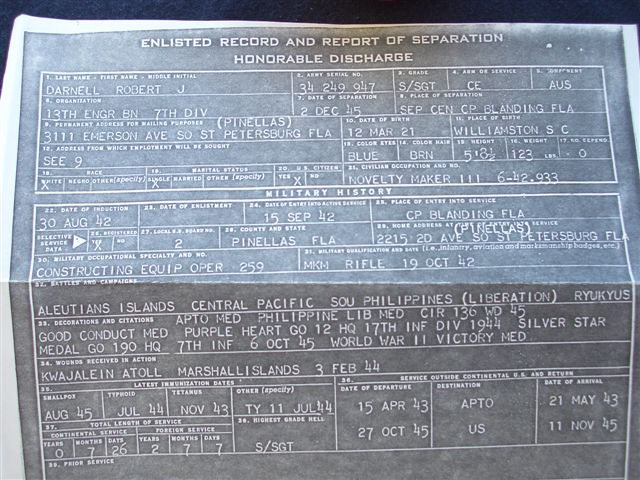 ENLISTED RECORD AND REPORT OF SEPARATION
HONORABLE DISCHARGE
1. LAST NAME - FIRST NAME - MIDDLE INITIAL 2. ARMY SERIAL NO. 3. GRADE 4. ARM OR SERVICE 5. COMPONENT
DARNELL ROBERT J 34 249 947 S/SGT CE AUS
6. ORGANIZATION 7. DATE OF SEPARATION 8. PLACE OF SEPARATION
13TH ENGR BN 7TH DIV 2 DEC 45 SEP CEN CP BLANDING FLA
9. PERMANENT ADDRESS FOR MAILING PURPOSES (PINELLAS) 10. DATE OF BIRTH 11. PLACE OF BIRTH
3111 EMERSON AVE SO ST PETERSBURG FLA 12 MAR 21 WILLIAMSTON S C
12. ADDRESS FROM WHICH EMPLOYMENT WILL BE SOUGHT 13. COLOR EYES 14. COLOR HAIR 15. HEIGHT 16. WEIGHT 17. NO. DEPEND.
SEE 9 BLUE BRN 123 LBS. 0
18. RACE 19. MARITAL STATUS 20. U.S. CITIZEN 21. CIVILIAN OCCUPATION AND NO.
WHITE NEGRO OTHER (specify) SINGLE MARRIED OTHER (specify) YES NO
X X X NOVELTY MAKER III 6-42.933
MILITARY HISTORY
22. DATE OF INDUCTION 23. DATE OF ENLISTMENT 24. DATE OF ENTRY INTO ACTIVE SERVICE 25. PLACE OF ENTRY INTO SERVICE
30 AUG 42 15 SEP 42 CP BLANDING FLA
SELECTIVE SERVICE DATA 26. REGISTERED YES NO 27. LOCAL S.S. BOARD NO. 28. COUNTY AND STATE 29. HOME ADDRESS AT TIME OF ENTRY INTO SERVICE (PINELLAS)
X 2 PINELLAS FLA 2215 2D AVE SO ST PETERSBURG FLA
30. MILITARY OCCUPATIONAL SPECIALTY AND NO. 31. MILITARY QUALIFICATION AND DATE (i.e., infantry, aviation and marksmanship badges, etc.)
CONSTRUCTING EQUIP OPER 259 MKM RIFLE 19 OCT 42
32. BATTLES AND CAMPAIGNS
ALEUTIANS ISLANDS CENTRAL PACIFIC SOU PHILIPPINES (LIBERATION) RYUKYUS
33. DECORATIONS AND CITATIONS APTO MED PHILIPPINE LIB MED CIR 136 WD 45
GOOD CONDUCT MED PURPLE HEART GO 12 HQ 17TH INF DIV 1944 SILVER STAR
MEDAL GO 190 HQ 7TH INF 6 OCT 45 WORLD WAR II VICTORY MED
34. WOUNDS RECEIVED IN ACTION
KWAJALEIN ATOLL MARSHALLISLANDS 3 FEB 44
35. LATEST IMMUNIZATION DATES 36. SERVICE OUTSIDE CONTINENTAL U.S. AND RETURN
SMALLPOX TYPHOID TETANUS OTHER (specify) DATE OF DEPARTURE DESTINATION DATE OF ARRIVAL
AUG 45 JUL 44 NOV 43 TY 11 JUL44 15 APR 43 APTO 21 MAY 43
37. TOTAL LENGTH OF SERVICE 38. HIGHEST GRADE HELD 27 OCT 45 US 11 NOV 45
CONTINENTAL SERVICE FOREIGN SERVICE
YEARS MONTHS DAYS YEARS MONTHS DAYS
0 7 26 2 7 7 S/SGT
39. PRIOR SERVICE